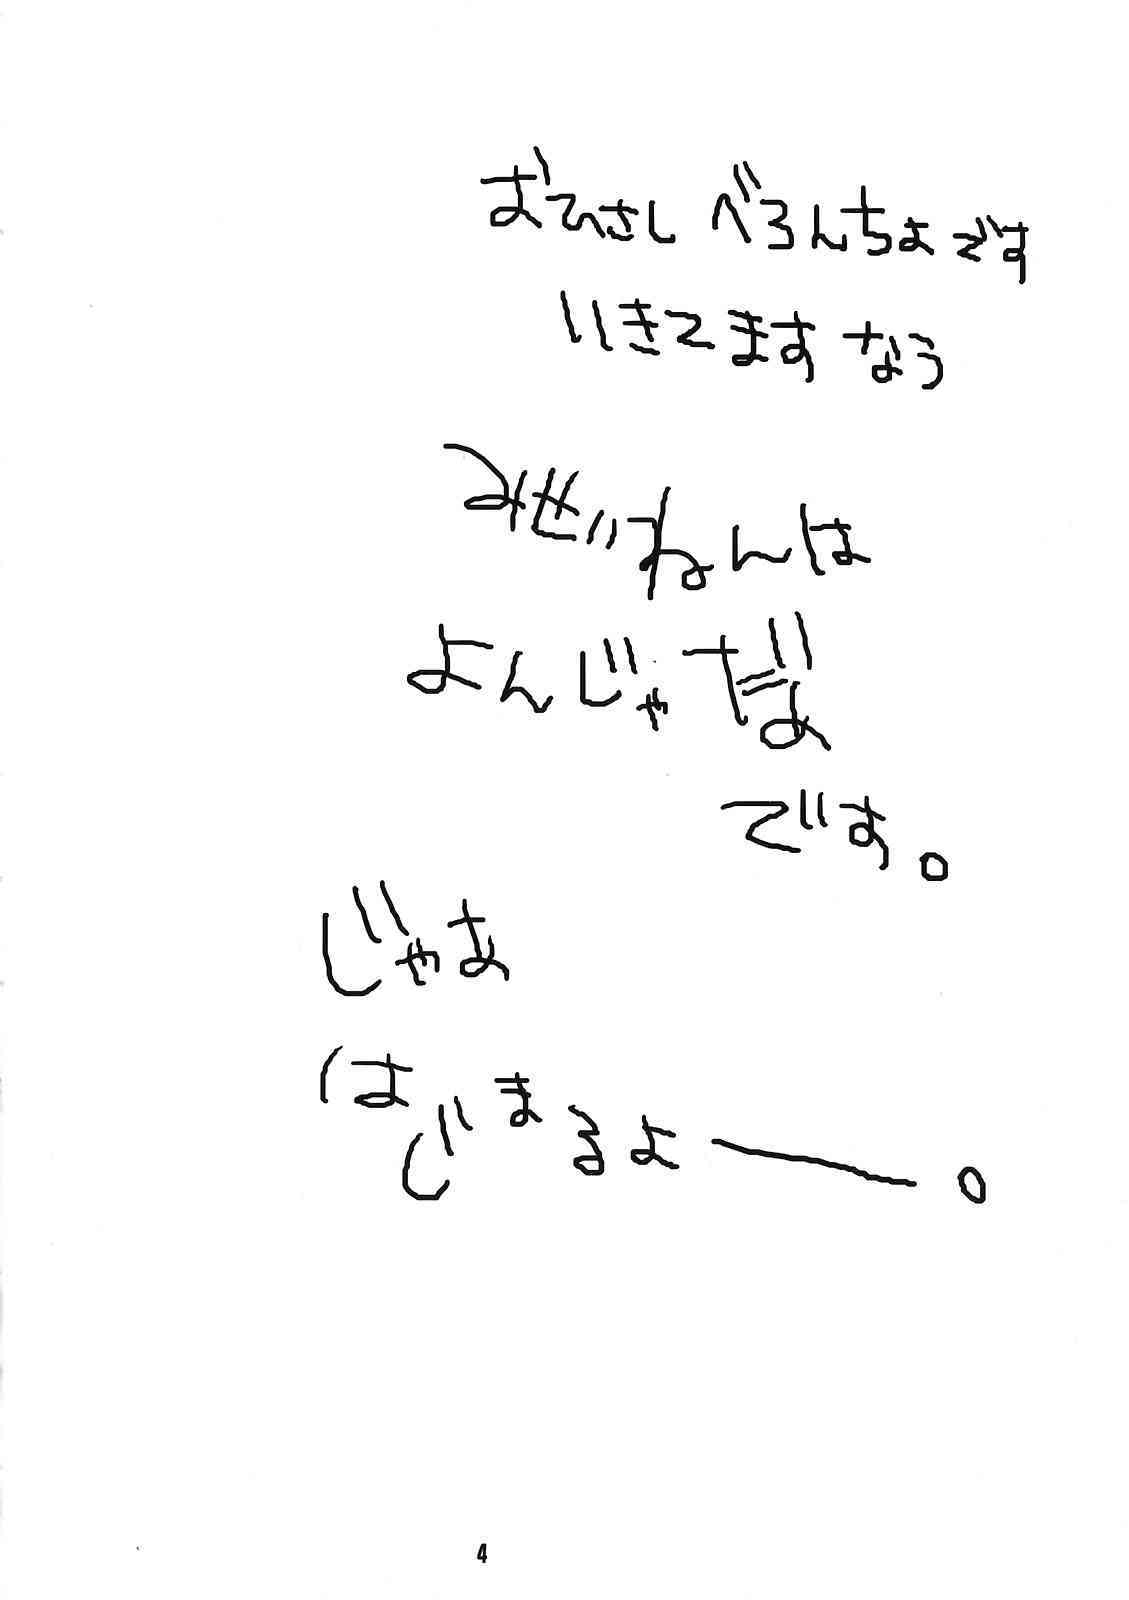 おひさし べろんちょです
いきてます なう
みせいねんは
よんじゃ だよ
です。
じゃあ
はじまるよー。
4